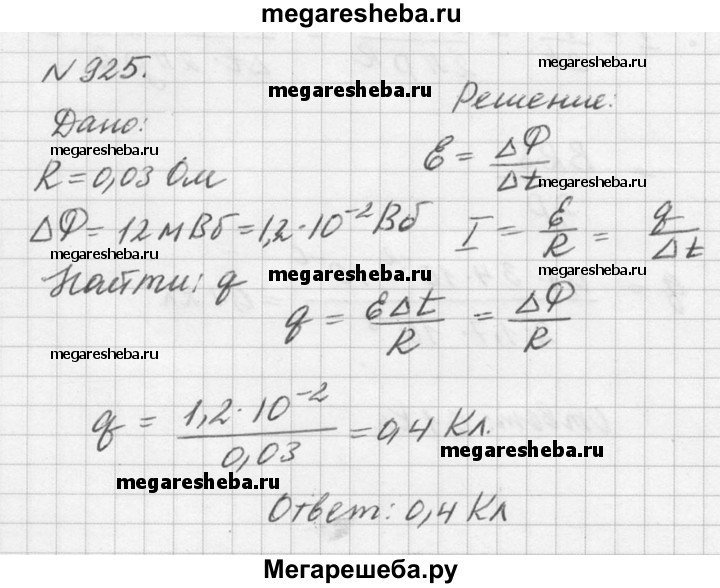 megaresheba.ru
N 925.
megaresheba.ru
megaresheba.ru
Решение:
Дано:
megaresheba.ru
ℰ = ΔΦ/Δt
R = 0,03 Ом
megaresheba.ru
ΔΦ = 12 мВб = 1,2·10⁻² Вб
I = ℰ/R = q/Δt
megaresheba.ru
Найти: q
megaresheba.ru
megaresheba.ru
q = ℰΔt/R = ΔΦ/R
megaresheba.ru
q = 1,2·10⁻²/0,03 = 0,4 Кл.
megaresheba.ru
megaresheba.ru
Ответ: 0,4 Кл
Мегарешеба.ру